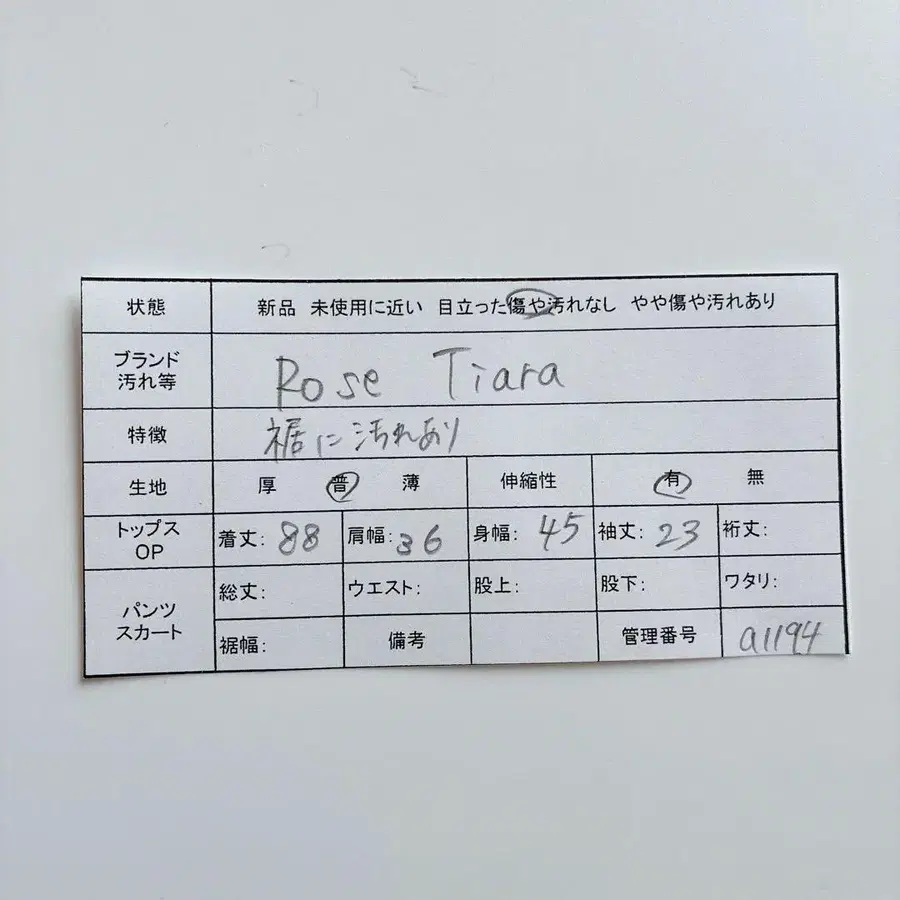 状態 新品 未使用に近い 目立った傷や汚れなし やや傷や汚れあり
ブランド
汚れ等
Rose Tiara
特徴 裾に汚れあり
生地 厚 普 薄 伸縮性 有 無
トップス
OP
着丈: 88 肩幅: 36 身幅: 45 袖丈: 23 裄丈:
パンツ
スカート
総丈: ウエスト: 股上: 股下: ワタリ:
裾幅: 備考 管理番号 a1194